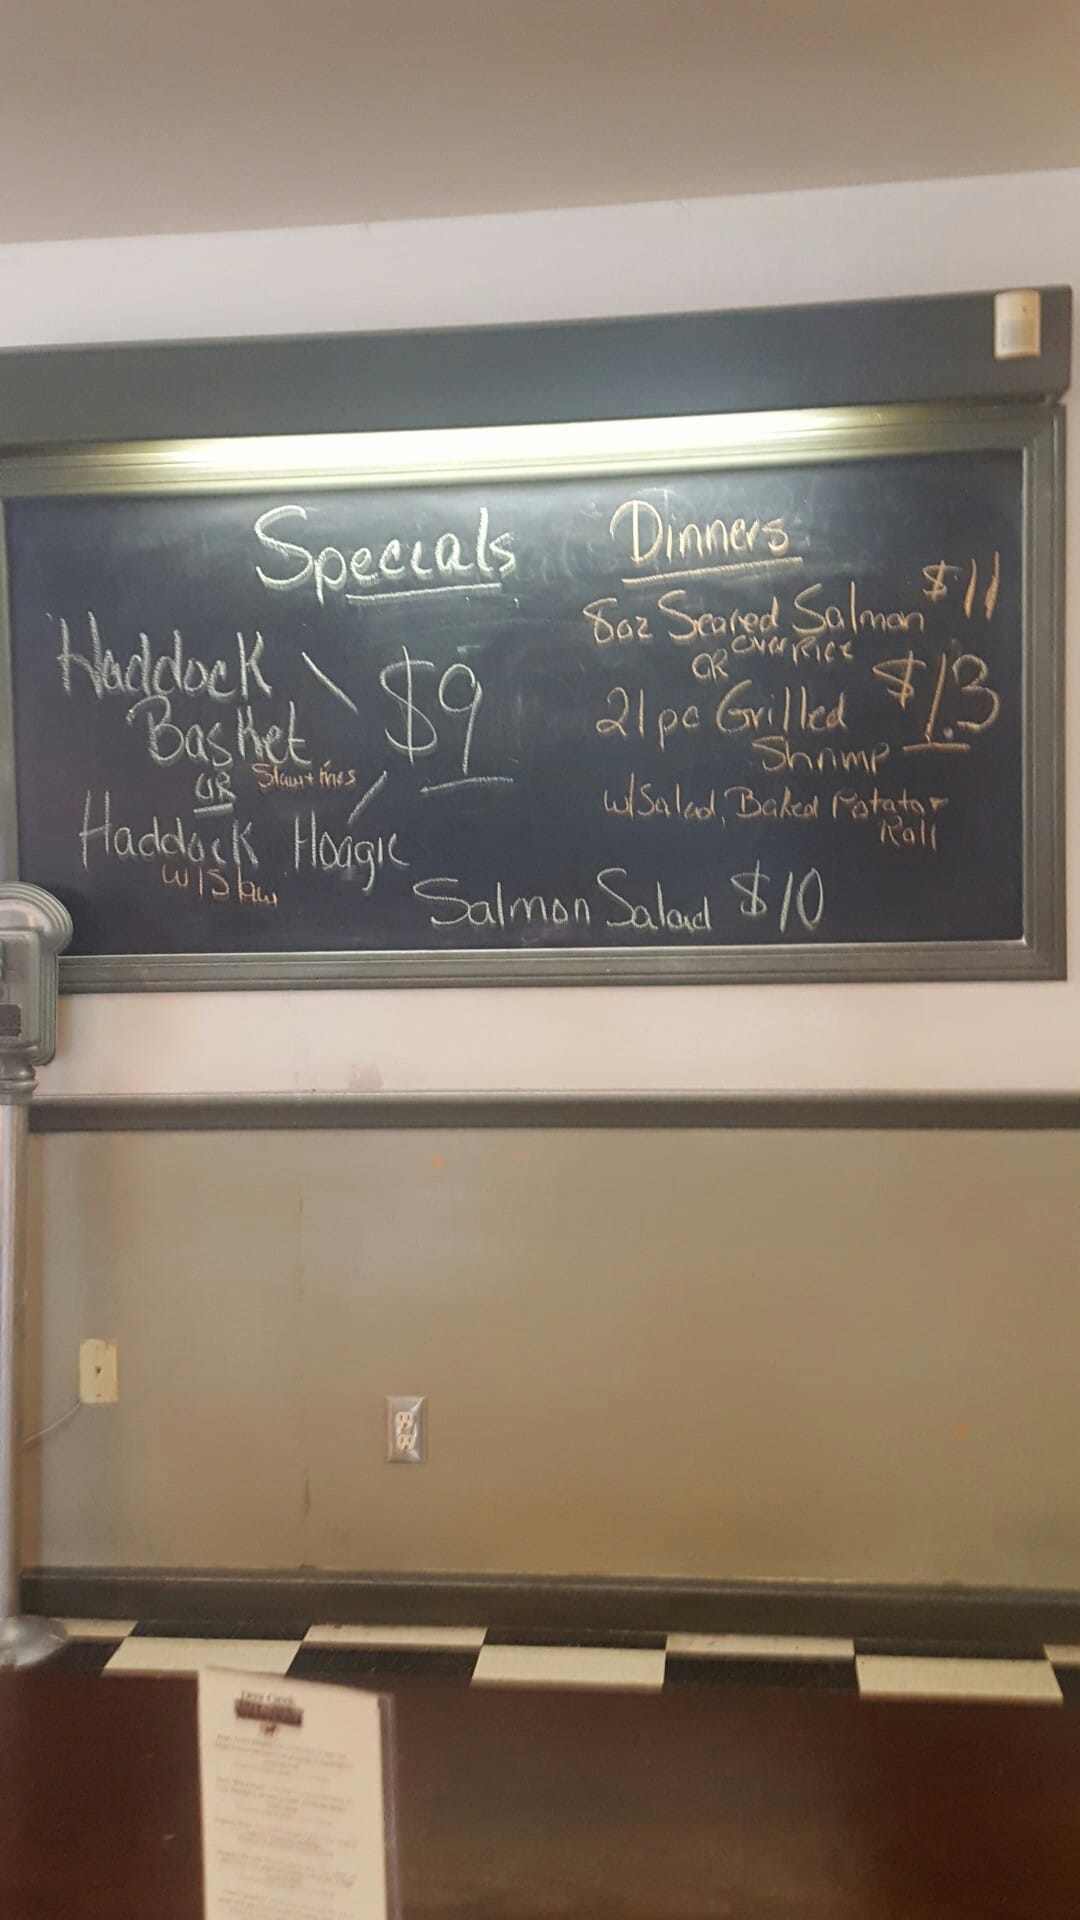 Specials
Haddock
Basket
OR Slaw + Fries
Haddock Hoagie
w/Slaw
$9
Dinners
8oz Seared Salmon $11
over Rice
OR
21pc Grilled $13
Shrimp
w/Salad, Baked Potato +
Roll
Salmon Salad $10